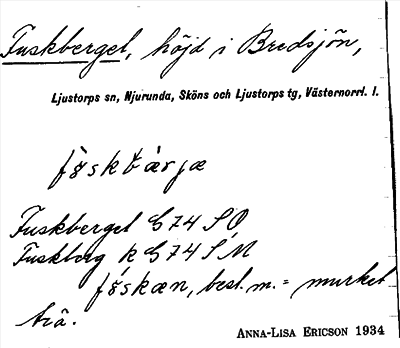 Fuskberget, höjd i Bredsjön,
Ljustorps sn, Njurunda, Sköns och Ljustorps tg, Västernorrl. l.
Fuskberget G74 SO
Fuskberg k G74 SM
best. m. = murket
trä.
ANNA-LISA ERICSON 1934